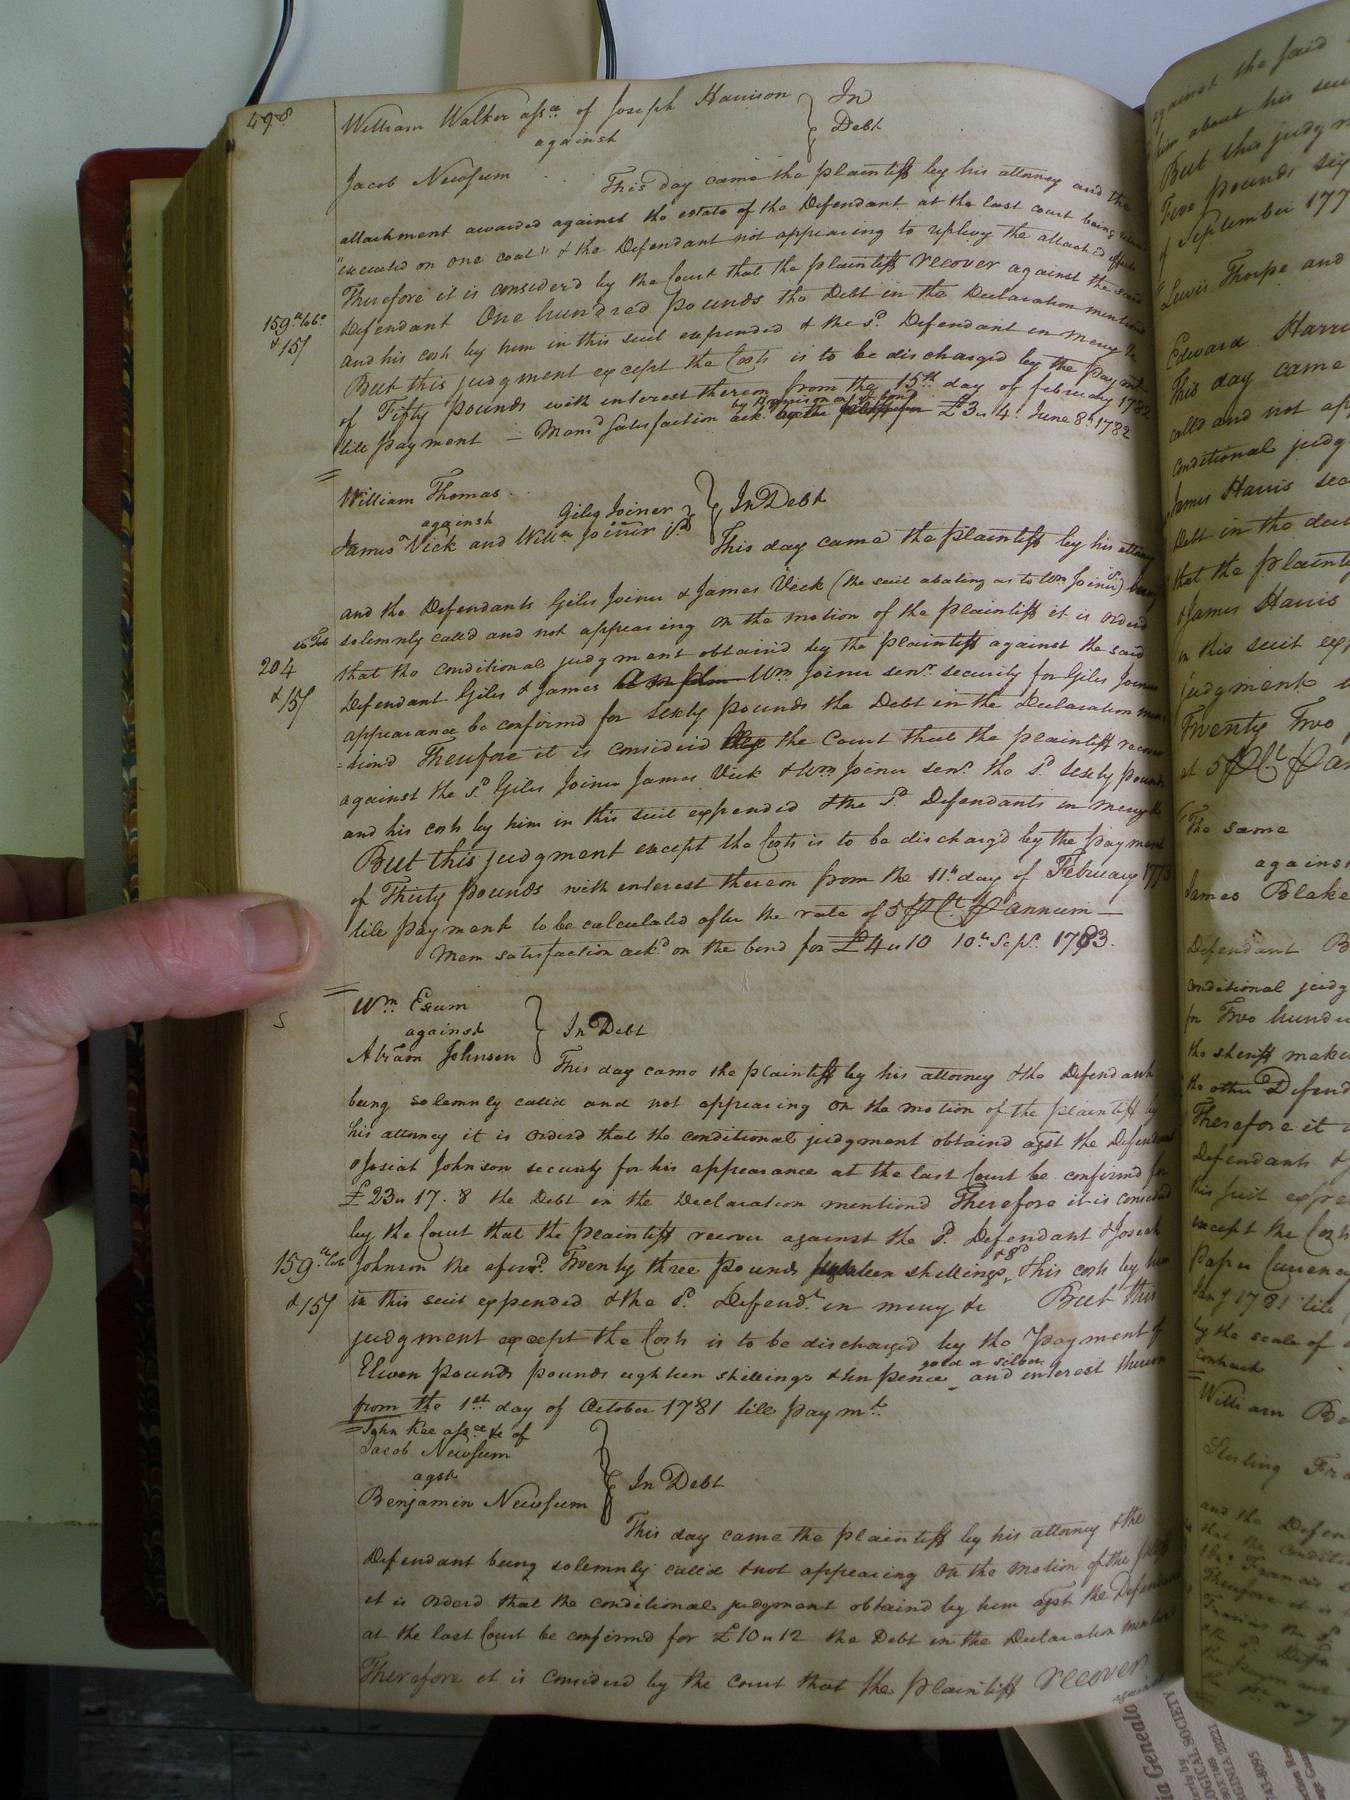 498
William Walker assee. of Joseph Harrison } In
against Debt
Jacob Newsum This day came the plaintiff by his attorney and the
attachment awarded against the estate of the Defendant at the last court being
"executed on one coat" & the Defendant not appearing to replevy the attached effects
Therefore it is considerd by the Court that the plaintiff recover against the said
Defendant One hundred pounds the Debt in the Declaration mentiond
159 tobo.
& 15/
and his costs by him in this suit expended & the sd. Defendant in mercy &c
But this judgment except the Costs is to be discharged by the payment
of Fifty pounds with interest thereon from the 15th day of february 1782
till payment — Memd. Satisfaction ack. £3.. 4. June 8th 1782
William Thomas
against Giles Joiner } In Debt
James Vick and Willm Joiner jr.
This day came the plaintiff by his attorney
and the Defendants Giles Joiner & James Vick (the suit abating as to Wm Joiner jr.) being
solemnly called and not appearing on the motion of the plaintiff it is orderd
204
& 15/
that the conditional judgment obtaind by the plaintiff against the said
Defendant Giles & James Wm Joiner senr. security for Giles Joiners
appearance be confirmed for Sixty pounds the Debt in the Declaration men=
=tiond Therefore it is considerd by the Court that the plaintiff recover
against the sd. Giles Joiner James Vick & Wm Joiner senr. the sd. Sixty pounds
and his costs by him in this suit expended & the sd. Defendants in mercy &c
But this judgment except the Costs is to be dischargd by the payment
of Thirty pounds with interest thereon from the 11th day of February 1773
till payment to be calculated after the rate of 5 P Ct. P annum —
Mem satisfaction ackd. on the bond for £4.. 10 10th Sepr. 1783.
Wm Exum
S
against } In Debt
Abram Johnson
This day came the plaintiff by his attorney & the Defendant
being solemnly called and not appearing On the motion of the plaintiff by
his attorney it is orderd that the conditional judgment obtaind agst the Defendant
& Josiah Johnson security for his appearance at the last Court be confirmed for
£23.. 17. 8 the Debt in the Declaration mentiond Therefore it is considerd
by the Court that the plaintiff recover against the sd. Defendant & Josiah
159
& 15/
Johnson the aforesd. Twenty three pounds seventeen shillings & 8d & his costs by him
in this suit expended & the sd. Defendt. in mercy &c But this
judgment except the Costs is to be discharged by the payment of
Eleven pounds pounds eighteen shillings & ten pence gold or silver and interest thereon
from the 1st day of October 1781 till paymt.
John Kee assee &c of
Jacob Newsum
agst } In Debt
Benjamin Newsum
This day came the plaintiff by his attorney & the
Defendant being solemnly called & not appearing On the motion of the pltff
it is orderd that the conditional judgment obtaind by him agst the Defendant
at the last Court be confirmed for £10.. 12 the Debt in the Declaration mentiond
Therefore it is considerd by the court that the plaintiff recover
against
against the said
him about his suit
But this judgm
Two pounds six
of September 177
Lewis Thorpe and
Edward Harri
This day came
calld and not app
conditional judg
James Harris sec
Debt in the decl
that the plainti
& James Harris
in this suit exp
judgment
Twenty Two
at 5 P Ct P an
The same
against
James Blake
Defendant B
conditional judg
for Two hund
the sheriff make
the other Defend
Therefore it i
Defendants &
his suit expe
except the Costs
Paper Currency
Jany 1781 till
by the scale of
contract
William Be
Sterling Fra
and the Defen
that the conditi
Therefore it is
Francis the S.
in Genealo
OGICAL SOCIETY
GINIA 22211
743-8095